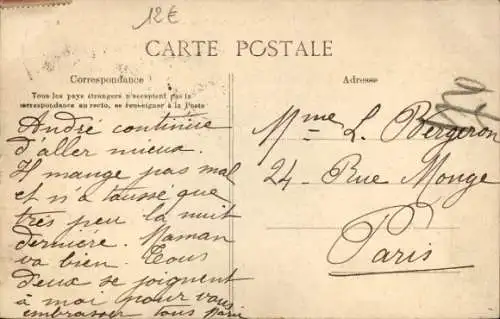 12€
CARTE POSTALE
Correspondance
Tous les pays étrangers n'acceptent pas la
correspondance au recto, se renseigner à la Poste
Adresse
André continue
d'aller mieux.
Il mange pas mal
et n'a toussé que
très peu la nuit
dernière. Maman
va bien. Tous
deux se joignent
à moi pour vous
embrasser tous
Mme L. Bergeron
24 - Rue Monge
Paris